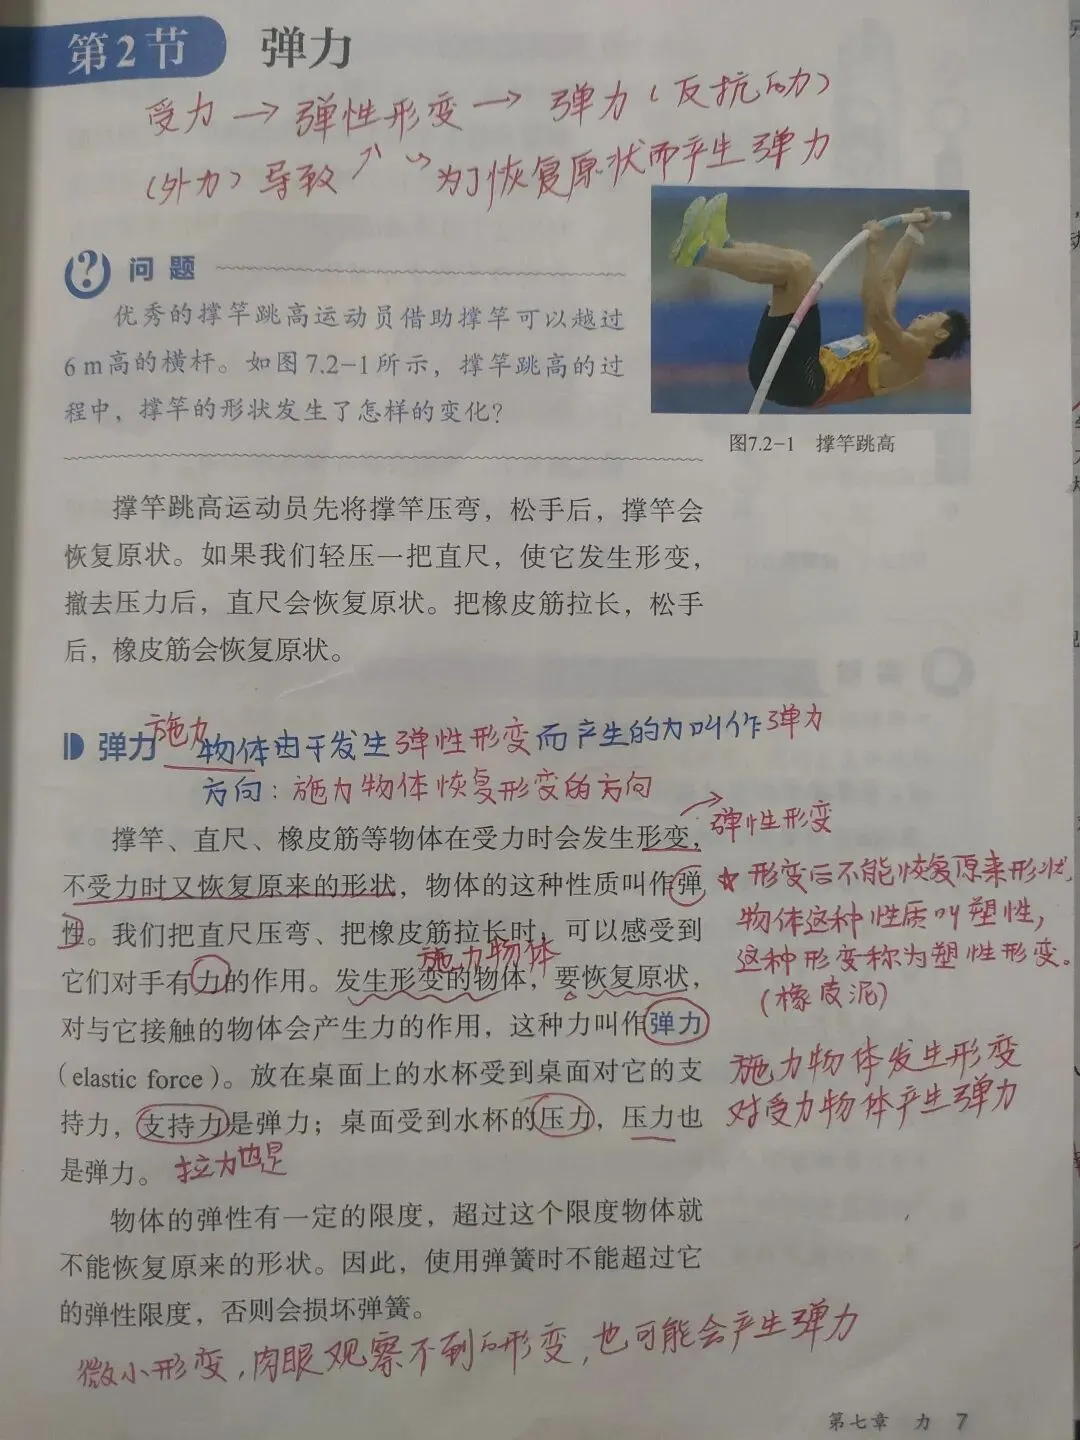 第2节 弹力
受力→弹性形变→弹力(反抗的力)
(外力)导致 为了恢复原状而产生弹力
问题
优秀的撑竿跳高运动员借助撑竿可以越过
6 m高的横杆。如图7.2-1所示，撑竿跳高的过
程中，撑竿的形状发生了怎样的变化？
图7.2-1 撑竿跳高
撑竿跳高运动员先将撑竿压弯，松手后，撑竿会
恢复原状。如果我们轻压一把直尺，使它发生形变，
撤去压力后，直尺会恢复原状。把橡皮筋拉长，松手
后，橡皮筋会恢复原状。
施力
弹力 物体由于发生弹性形变而产生的力叫作弹力
方向：施力物体恢复形变的方向
撑竿、直尺、橡皮筋等物体在受力时会发生形变，
不受力时又恢复原来的形状，物体的这种性质叫作弹
性。我们把直尺压弯、把橡皮筋拉长时，可以感受到
施力物体
它们对手有力的作用。发生形变的物体，要恢复原状，
对与它接触的物体会产生力的作用，这种力叫作弹力
（elastic force）。放在桌面上的水杯受到桌面对它的支
持力，支持力是弹力；桌面受到水杯的压力，压力也
是弹力。 拉力也是
弹性形变
☆形变后不能恢复原来形状，
物体这种性质叫塑性，
这种形变称为塑性形变。
(橡皮泥)
施力物体发生形变
对受力物体产生弹力
物体的弹性有一定的限度，超过这个限度物体就
不能恢复原来的形状。因此，使用弹簧时不能超过它
的弹性限度，否则会损坏弹簧。
微小形变，肉眼观察不到的形变，也可能会产生弹力
第七章 力 7